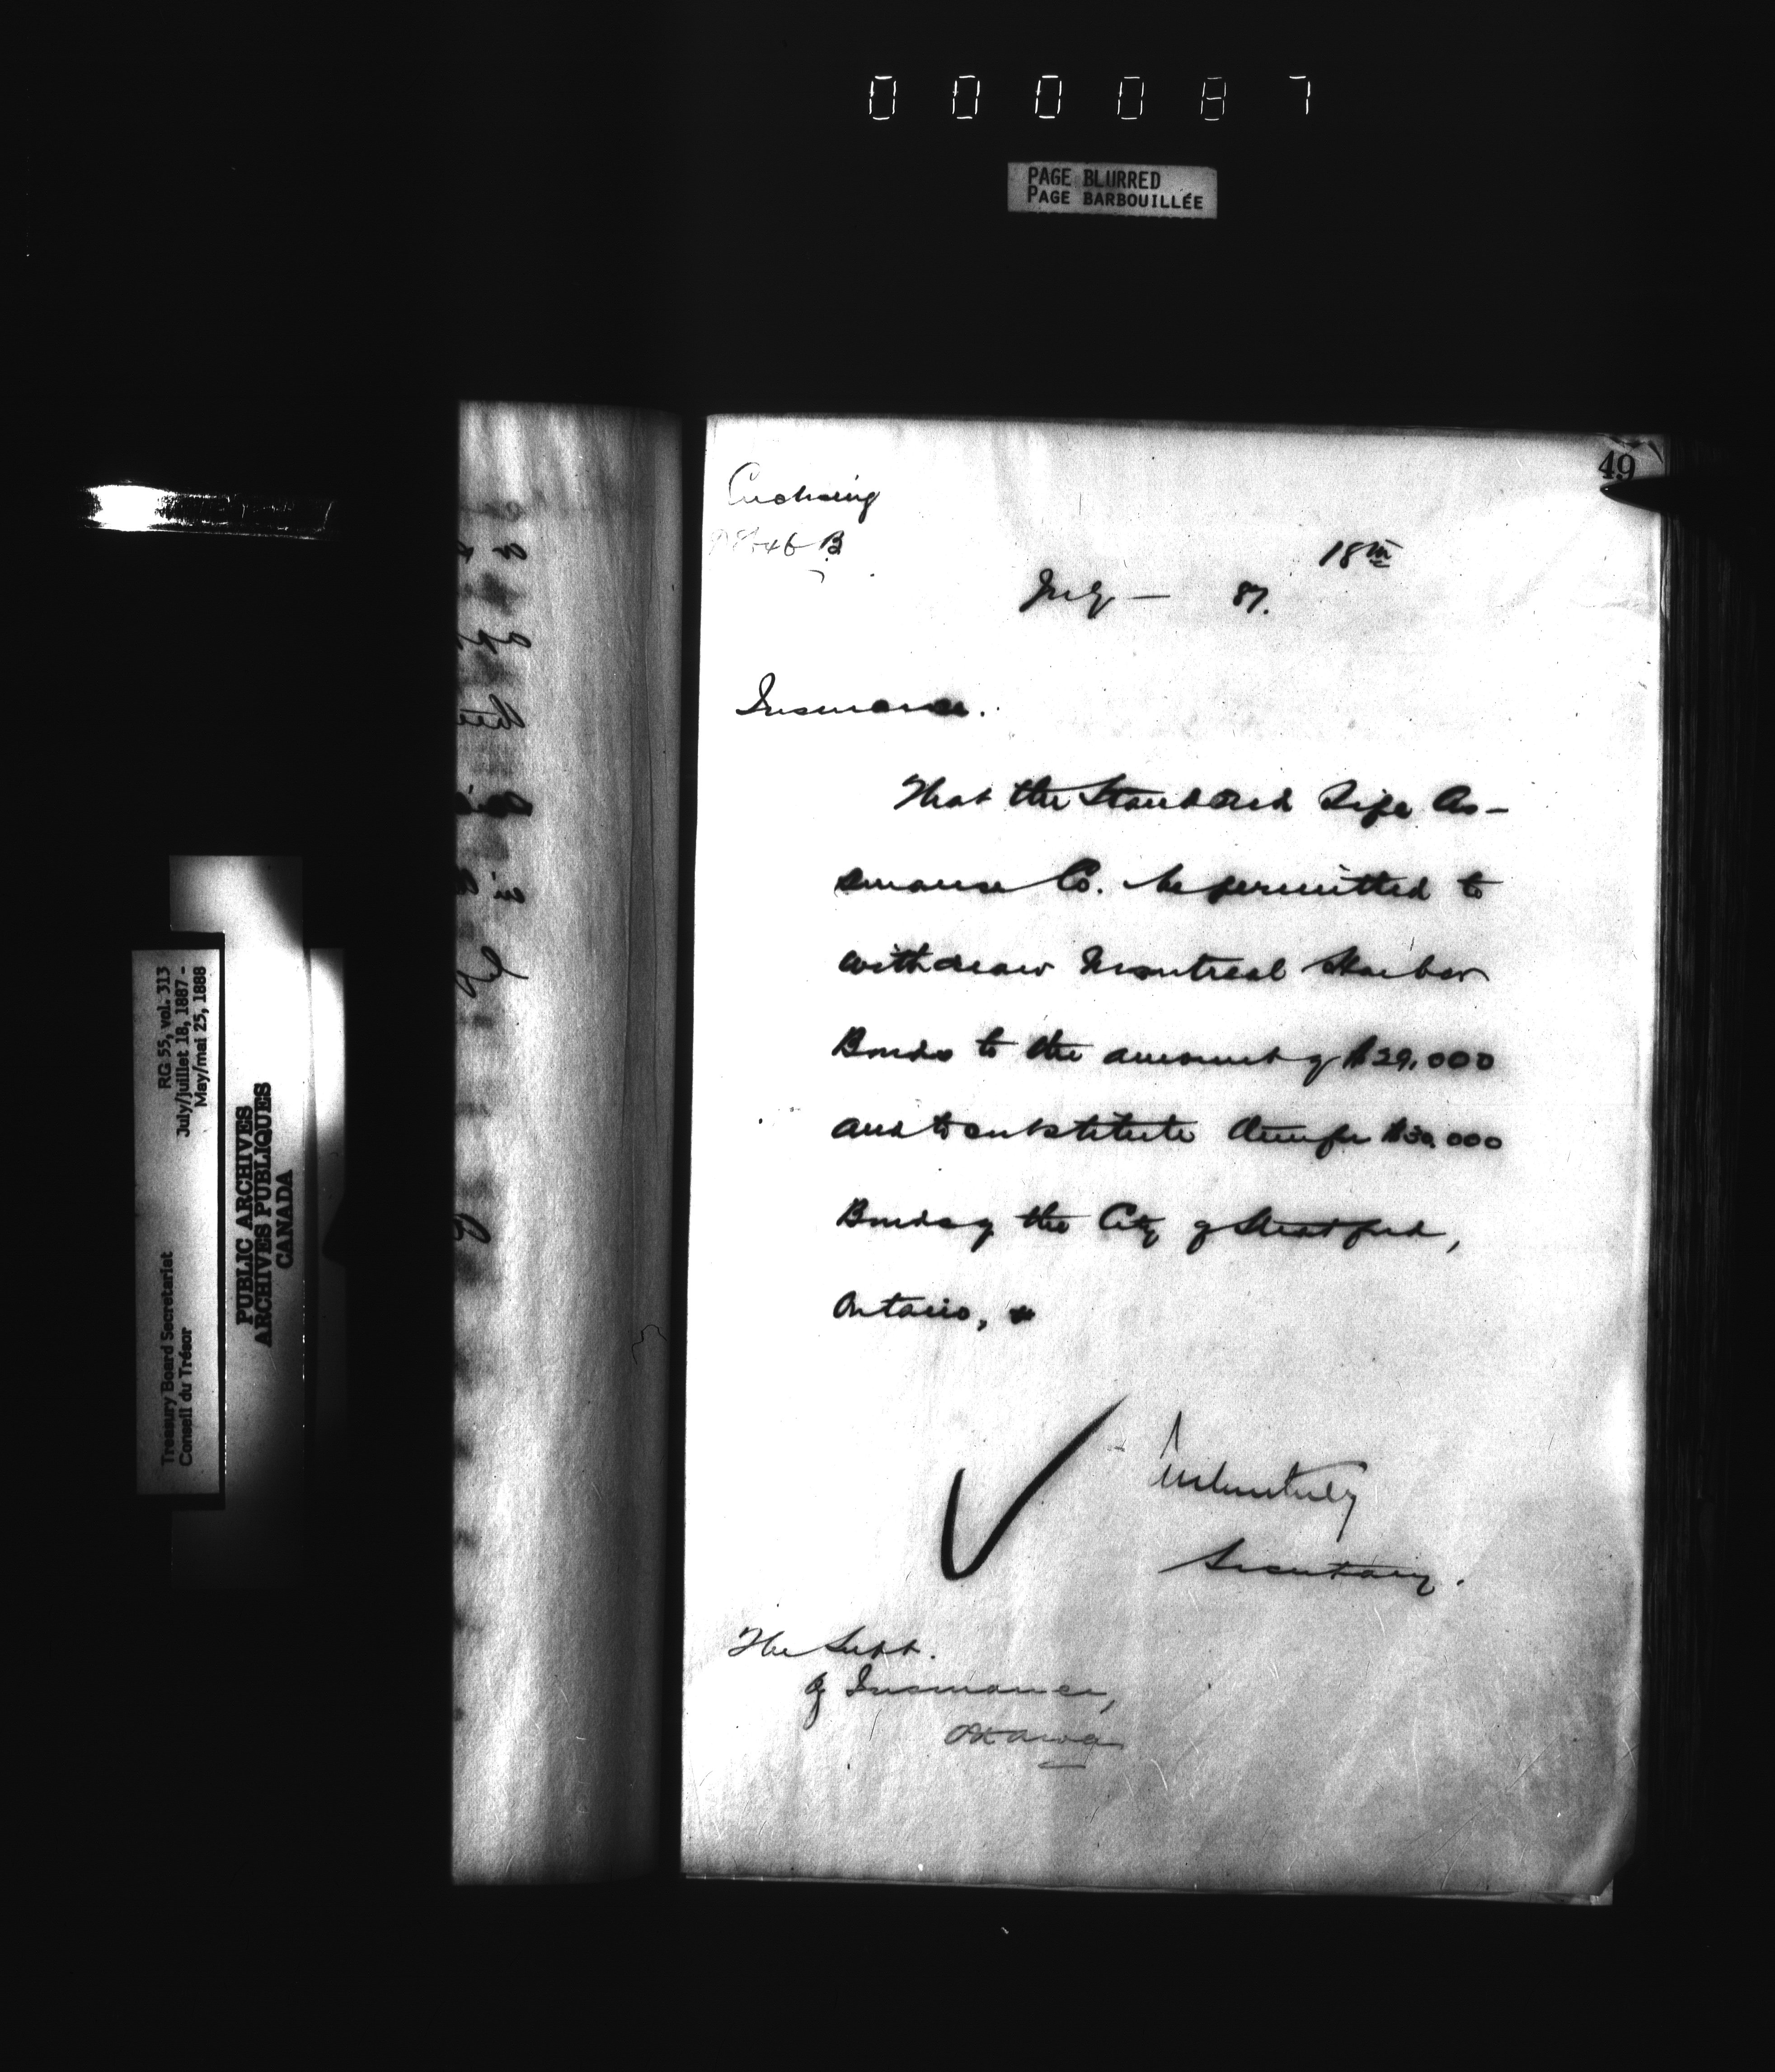 000087
PAGE BLURRED
PAGE BARBOUILLÉE
49
Enclosing
B
18th
July — 87.
Insurance.
That the Standard Life As-
surance Co. be permitted to
withdraw Montreal Harbor
Bonds to the amount of $29,000
and to substitute therefor $30,000
Bonds of the City of Stratford,
Ontario,
Secretary.
The Supt.
of Insurance,
Ottawa
RG 55, vol. 313
July/juillet 18, 1887 -
May/mai 25, 1888
Treasury Board Secretariat
Conseil du Trésor
PUBLIC ARCHIVES
ARCHIVES PUBLIQUES
CANADA